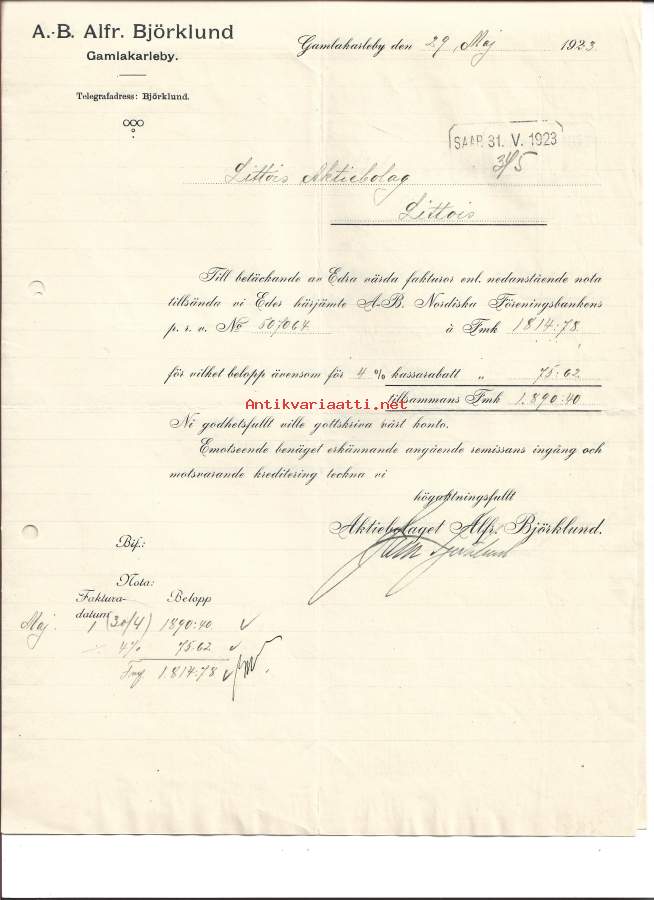 A.-B. Alfr. Björklund
Gamlakarleby.
Telegrafadress: Björklund.
Gamlakarleby den 29 Maj 1923
SAAP. 31. V. 1923
31/5
Littois Aktiebolag
Littois
Till betäckande av Edra värda fakturor enl. nedanstående nota
tillsända vi Eder härjämte A.-B. Nordiska Föreningsbankens
p. r. v. No 507064 à Fmk 1814:78
för vilket belopp ävensom för 4 % kassarabatt „ 75:62
Antikvariaatti.net
tillsammans Fmk 1.890:40
Ni godhetsfullt ville gottskriva vårt konto.
Emotseende benäget erkännande angående remissans ingång och
motsvarande kreditering teckna vi
högaktningsfullt
Aktiebolaget Alfr. Björklund.
Bif.:
Nota:
Faktura-datum Belopp
Maj. 1 (30/4) 1890:40
4% 75:62
Fmk 1.814:78